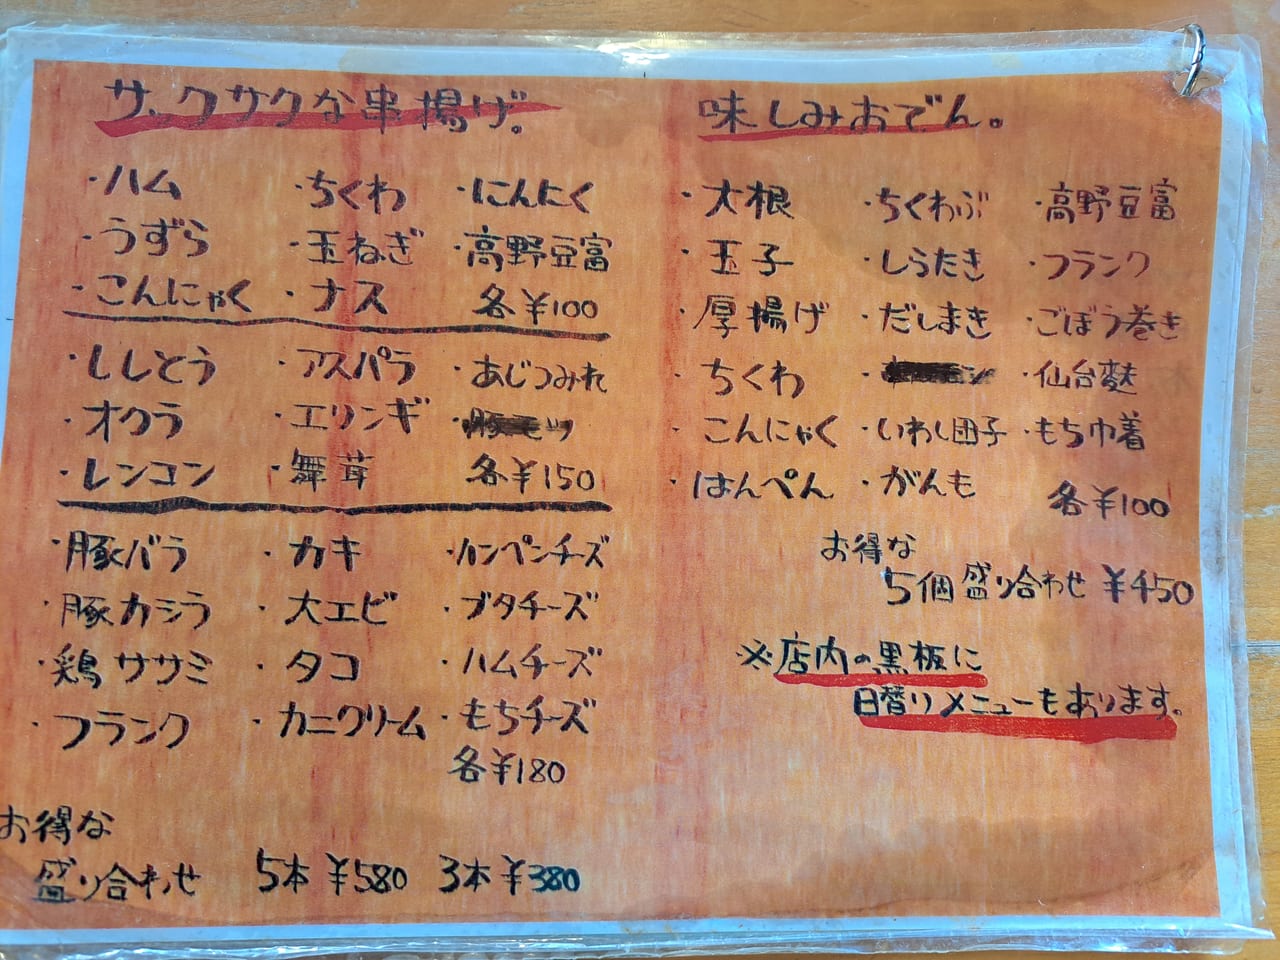 サックサクな串揚げ。
・ハム ・ちくわ ・にんにく
・うずら ・玉ねぎ ・高野豆富
・こんにゃく ・ナス 各¥100
・ししとう ・アスパラ ・あじつみれ
・オクラ ・エリンギ
・レンコン ・舞茸 各¥150
・豚バラ ・カキ ・カンペンチーズ
・豚カシラ ・大エビ ・ブタチーズ
・鶏ササミ ・タコ ・ハムチーズ
・フランク ・カニクリーム ・もちチーズ
各¥180
お得な
盛り合わせ 5本¥580 3本¥380
味しみおでん。
・大根 ・ちくわぶ ・高野豆富
・玉子 ・しらたき ・フランク
・厚揚げ ・だしまき ・ごぼう巻き
・ちくわ ・仙台麩
・こんにゃく ・いわし団子 ・もち巾着
・はんぺん ・がんも 各¥100
お得な
5個盛り合わせ ¥450
※店内の黒板に
日替りメニューもあります。